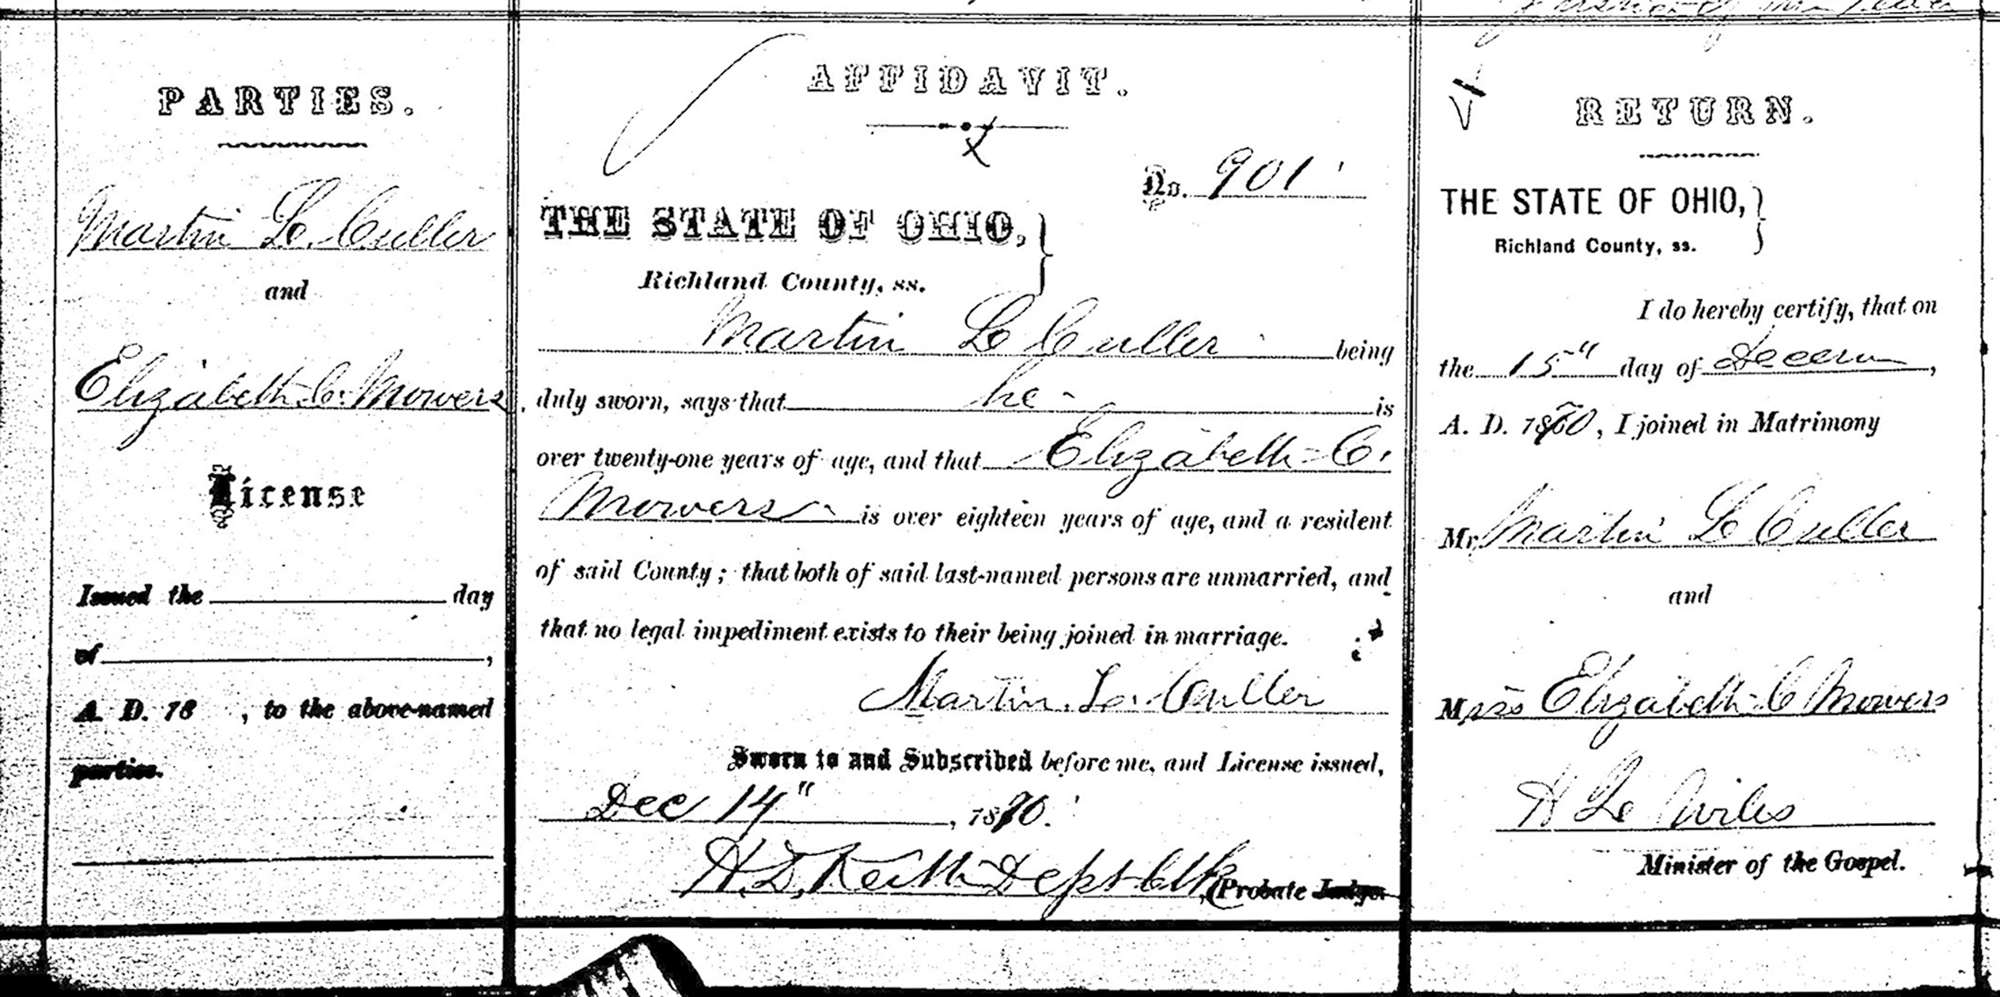 PARTIES.
Martin L. Culler
and
Elizabeth C. Mowers,
License
Issued the day
of ,
A. D. 18 , to the above-named
parties.
AFFIDAVIT.
No. 901
THE STATE OF OHIO,
Richland County, ss.
Martin L Culler being
duly sworn, says that he is
over twenty-one years of age, and that Elizabeth C.
Mowers is over eighteen years of age, and a resident
of said County; that both of said last-named persons are unmarried, and
that no legal impediment exists to their being joined in marriage.
Martin. L. Culler
Sworn to and Subscribed before me, and License issued,
Dec 14", 1870.
H. D. Keith Dept Clk (Probate Judge.
RETURN.
THE STATE OF OHIO,
Richland County, ss.
I do hereby certify, that on
the 15" day of Decem,
A. D. 1870, I joined in Matrimony
Mr. Martin L Culler
and
Miss Elizabeth C Mowers
H L Wiles
Minister of the Gospel.